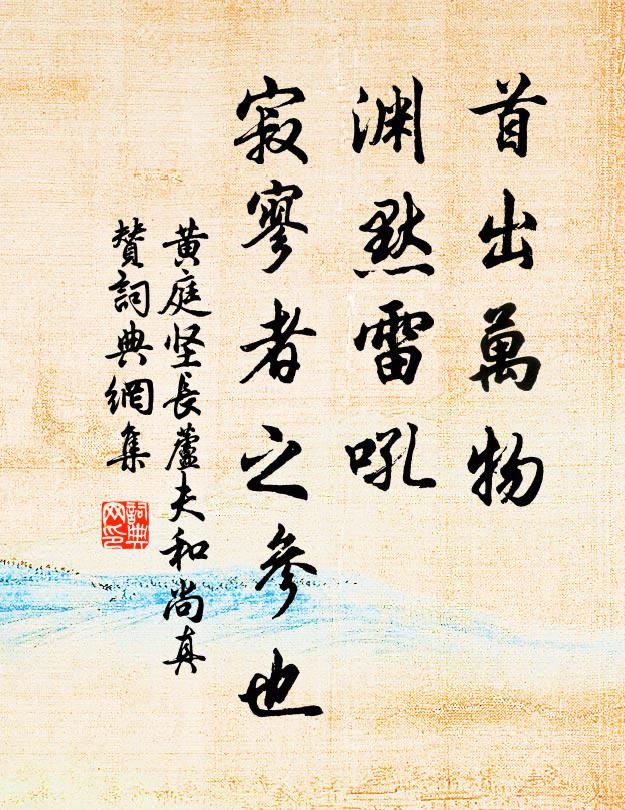 首出萬物
淵默雷吼
寂寥者之參也
黃庭坚長蘆夫和尚真
贊詞典網集
詞典
网印